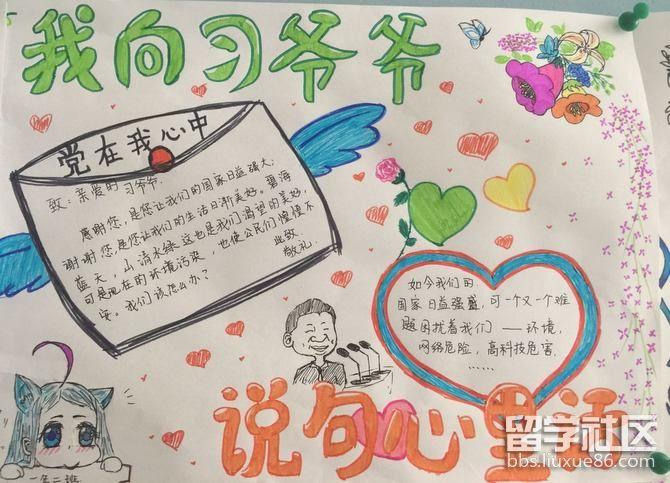 我向习爷爷
党在我心中
致：亲爱的习爷爷
感谢您，是您让我们的国家日益强大，
谢谢您，是您让我们的生活日渐美好。碧海
蓝天，山清水绿这也是我们渴望的美好，
可是现在的环境污染，也使公民们惶惶不
安。我们该怎么办？
此致
敬礼
如今我们的
国家日益强盛，可一个又一个难
题困扰着我们——环境，
网络危险，高科技危害，
……
说句心里话
一年二班
留学社区
bbs.liuxue86.com